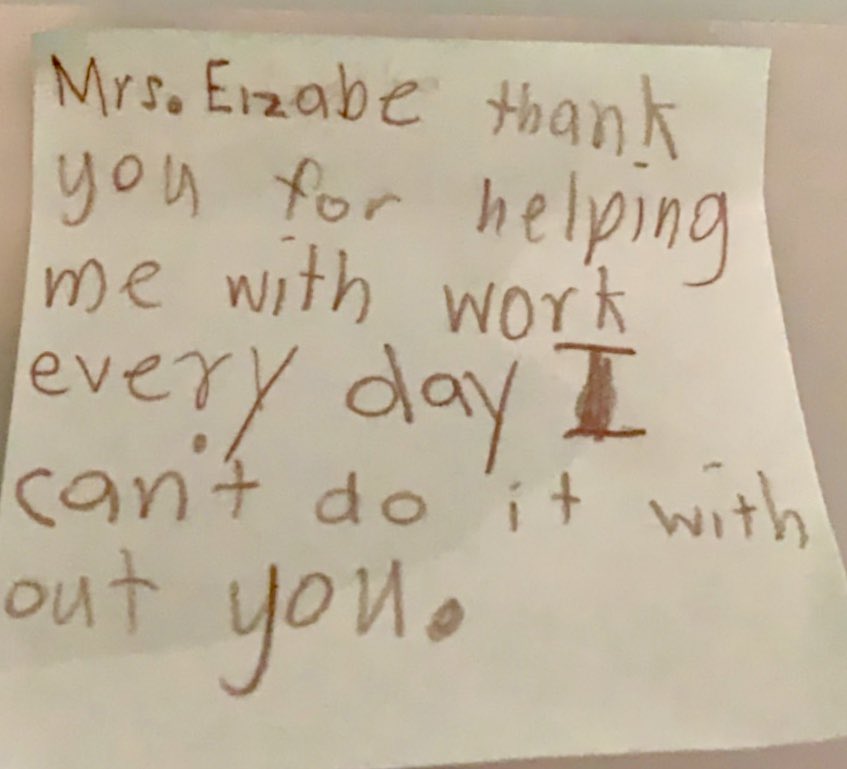 Mrs. Eizabe thank
you for helping
me with work
every day I
can't do it with
out you.